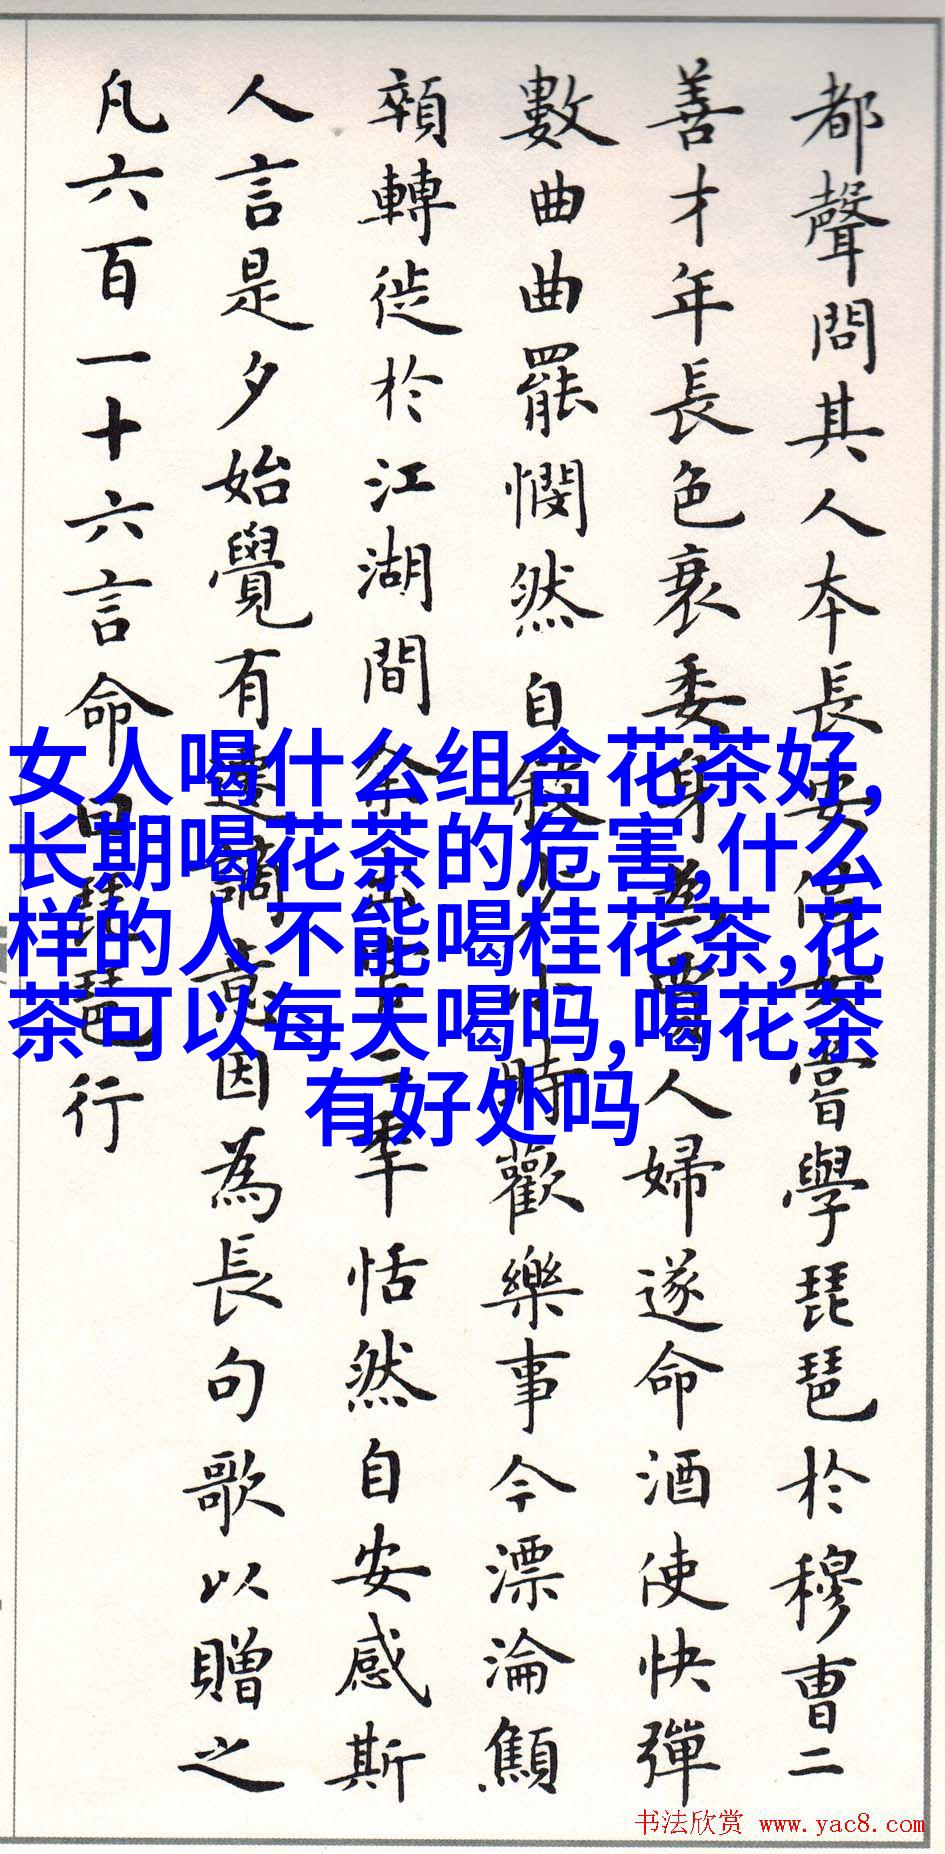 都聲問其人本長安倡女嘗學琵琶於穆曹二
善才年長色衰委身為賈人婦遂命酒使快彈
數曲曲罷憫然自敘少小時歡樂事今漂淪顦
顇轉徙於江湖間余出官二年恬然自安感斯
人言是夕始覺有遷謫意因為長句歌以贈之
凡六百一十六言命曰琵琶行
女人喝什么组合花茶好,
长期喝花茶的危害,什么
样的人不能喝桂花茶,花
茶可以每天喝吗,喝花茶
有好处吗
书法欣赏 www.yac8.com